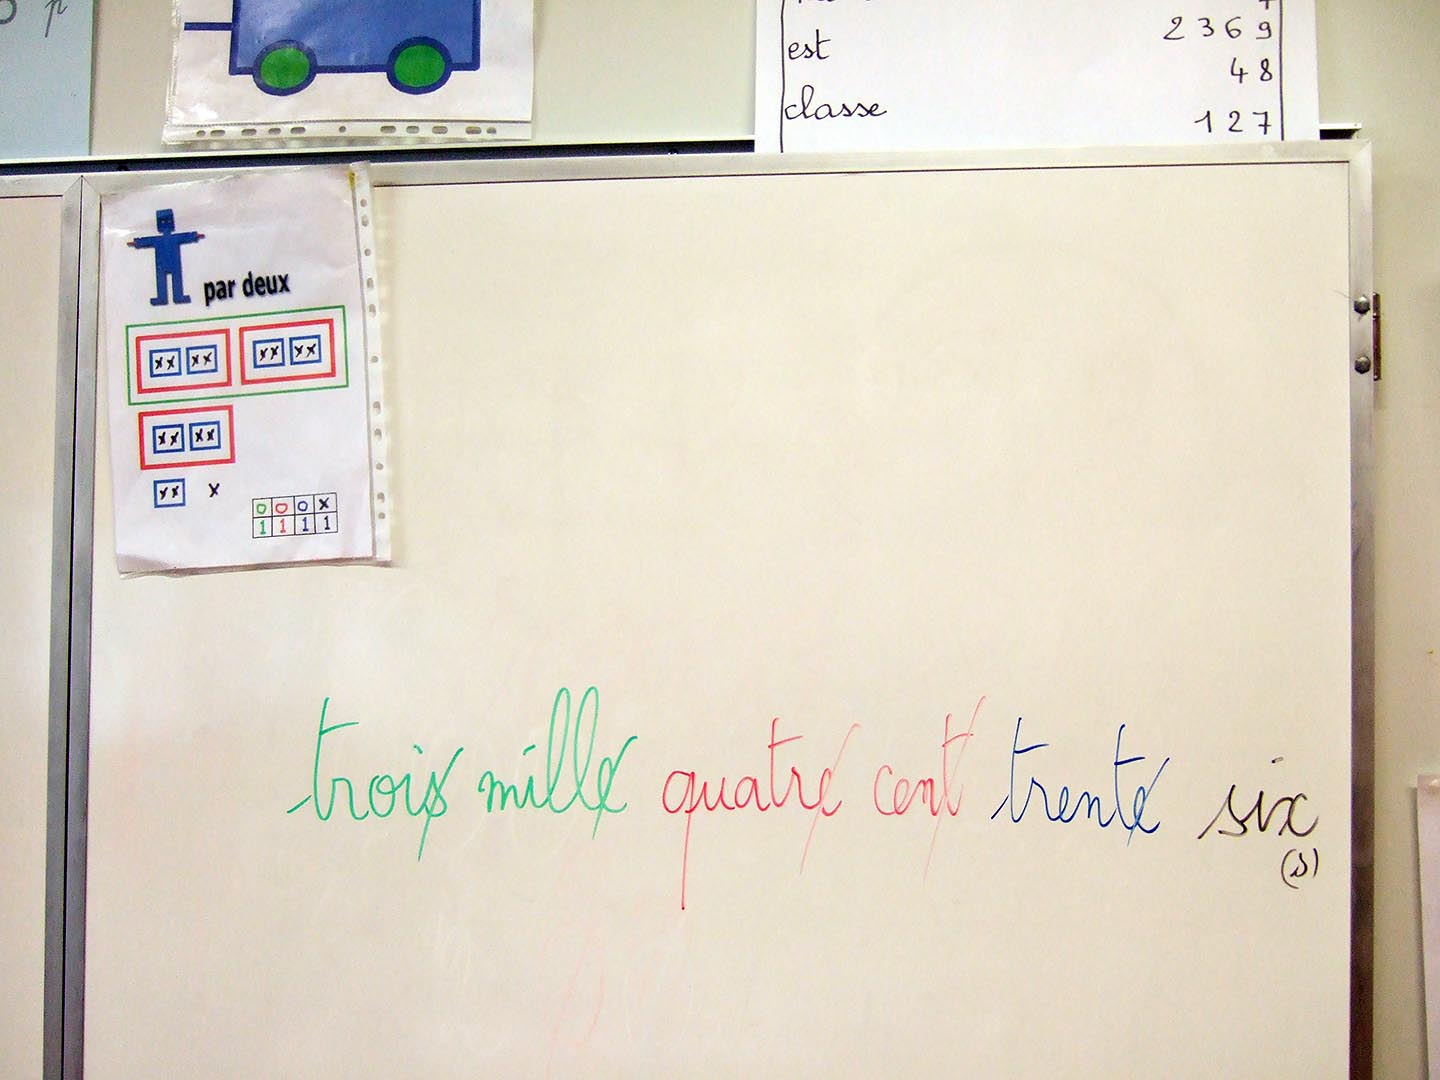 p
est 2369
48
classe 127
par deux
xx xx xx xx
xx xx
xx x
0 0 0 x
1 1 1 1
trois mille quatre cent trente six
(s)